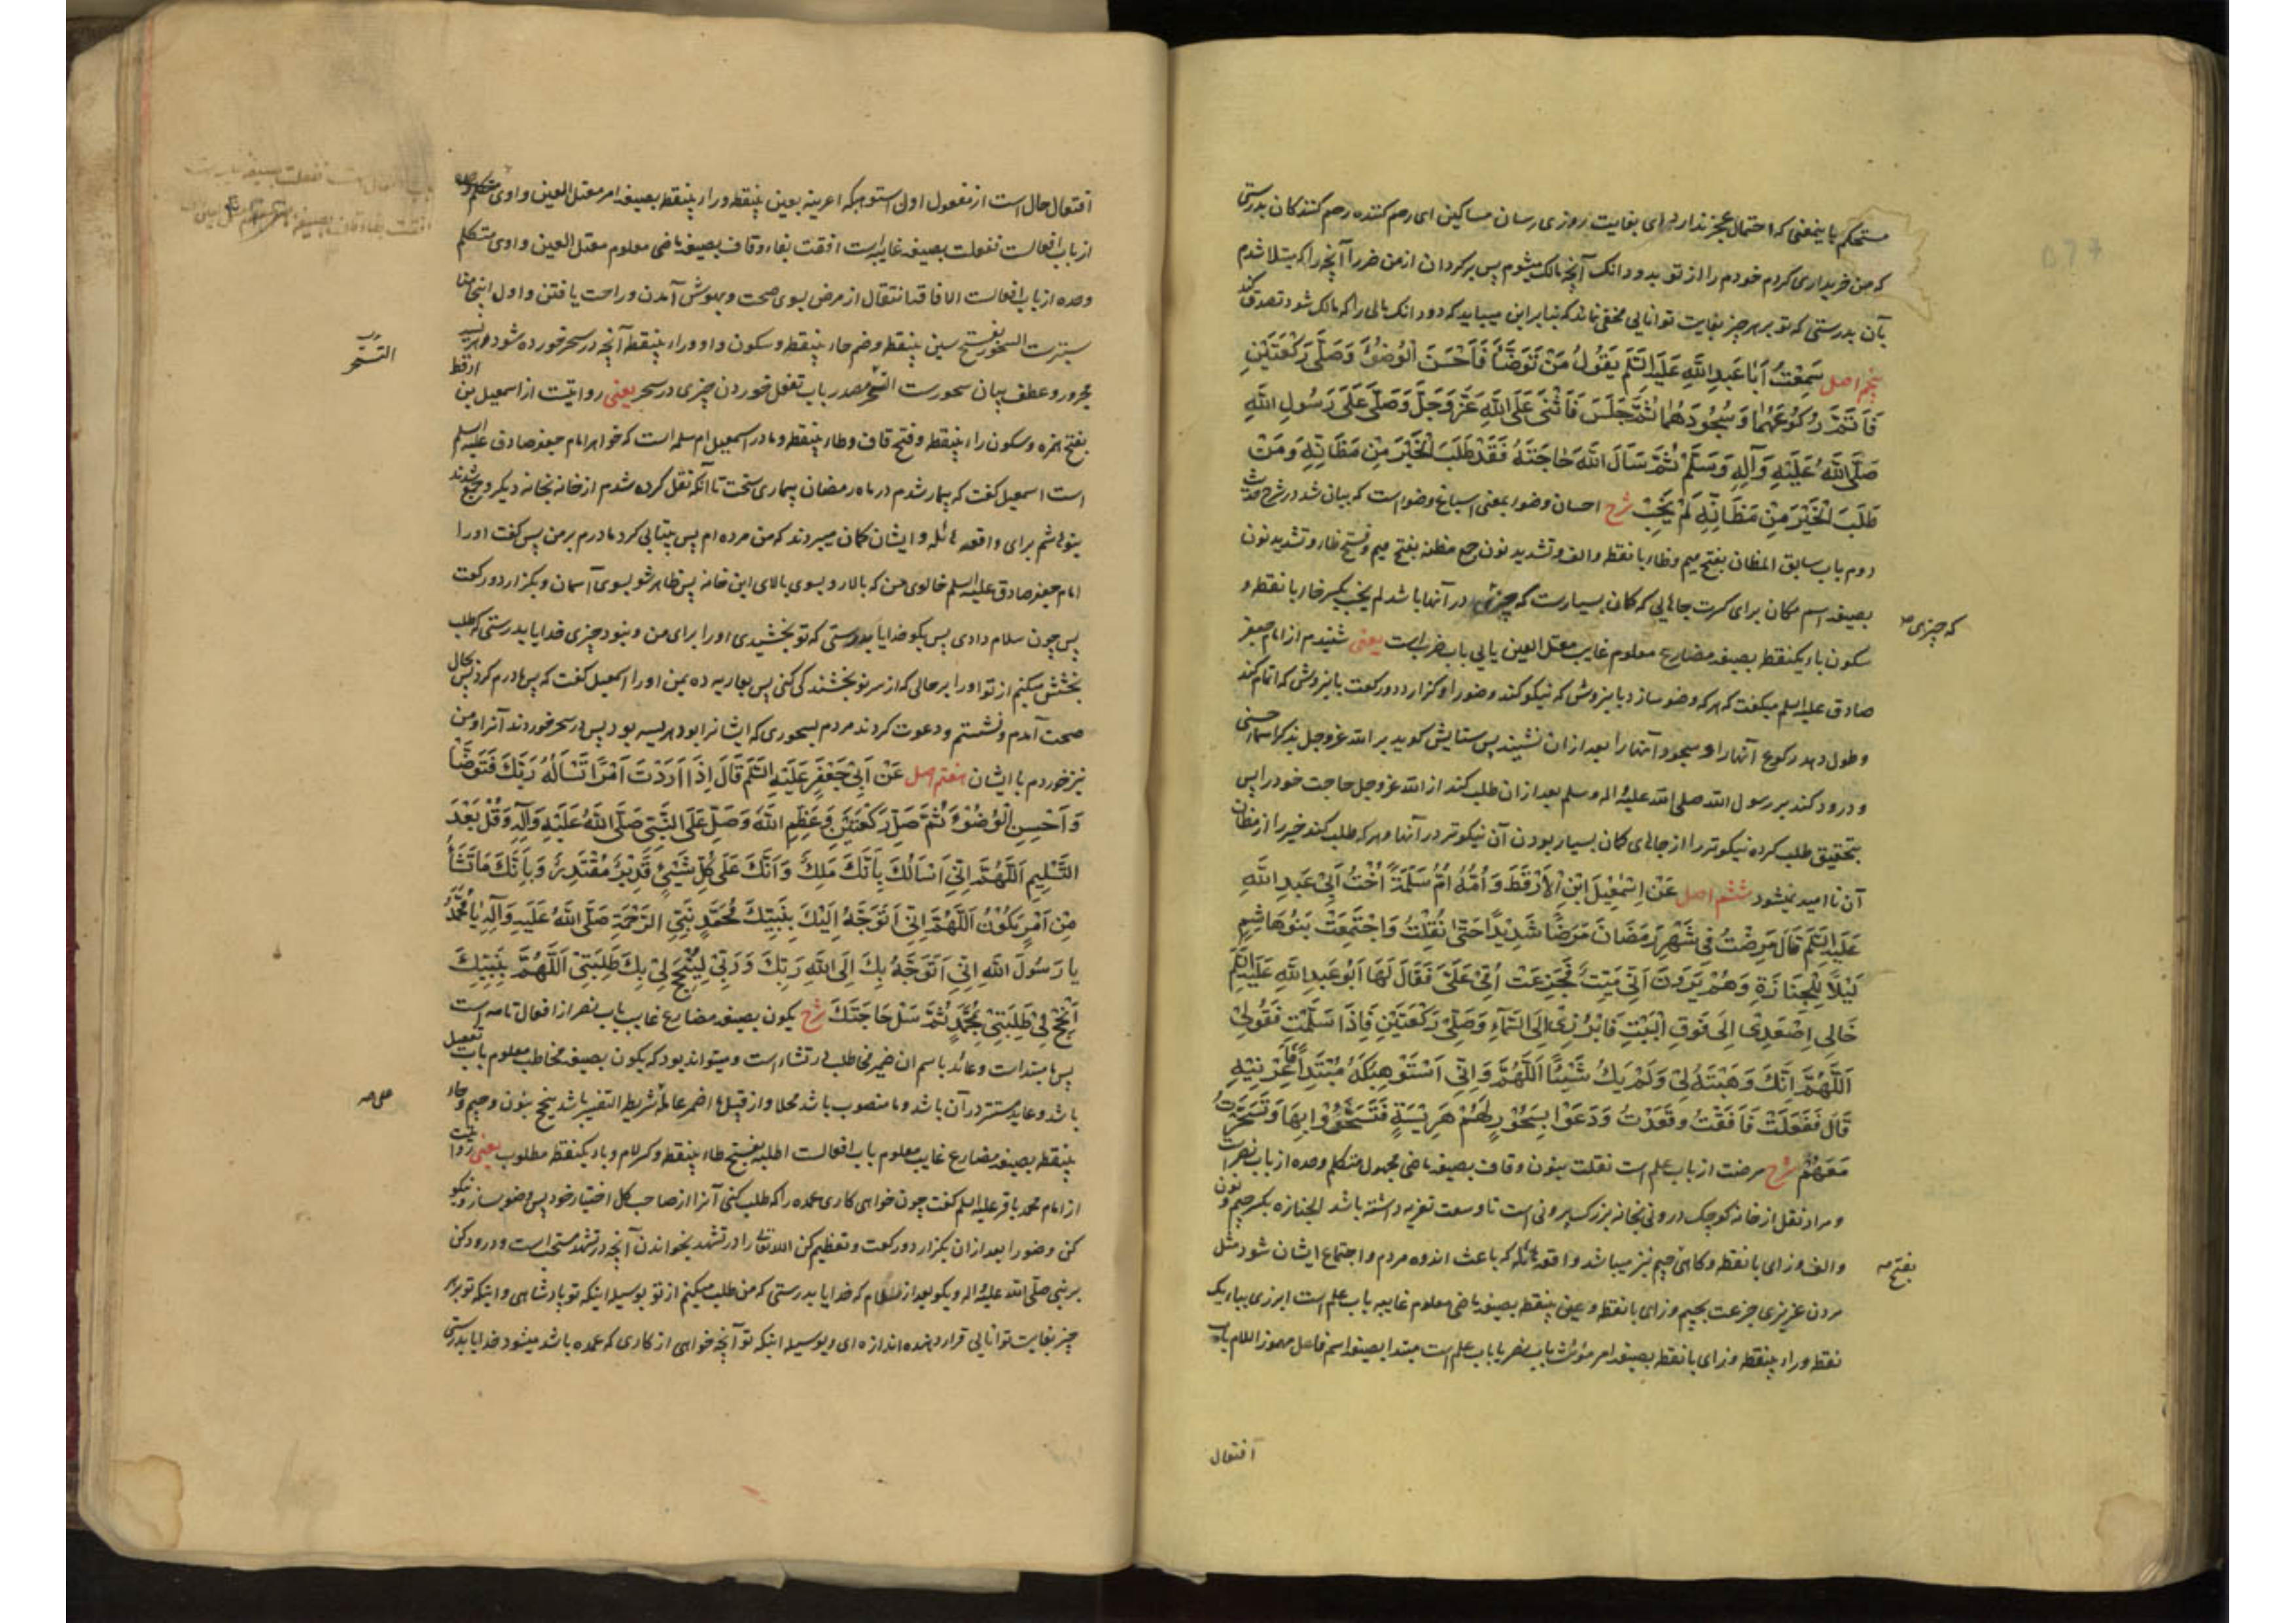 مستحکم باینمعنی که احتمال عجز ندارد ای بغایت روزی رسان مساکین ای رحم کننده رحم کنندکان بدرستی
که من خریداری کردم خودم را از تو بدو دانک آنچه مالک میشوم پس برکردان از من ضرر آنچه را که مبتلا شدم
بآن بدرستی که تو بر هر چیز بغایت توانایی مخفی نماند که بنا بر این میباید که دو دانک مالی را که مالک شود تصدق کند
پنجم اصل سَمِعْتُ اَبَا عَبدِ اللّٰهِ عَلَیهِ السَّلَم یَقُولُ مَنْ تَوَضَّأَ فَاَحْسَنَ الْوُضُوءَ وَصَلّٰی رَکْعَتَیْنِ
فَاَتَمَّ رُکُوعَهُمَا وَسُجُودَهُمَا ثُمَّ جَلَسَ فَاَثْنٰی عَلَی اللّٰهِ عَزَّ وَجَلَّ وَصَلّٰی عَلٰی رَسُولِ اللّٰهِ
صَلَّی اللّٰهُ عَلَیْهِ وَآلِهِ وَسَلَّمَ ثُمَّ سَأَلَ اللّٰهَ حَاجَتَهُ فَقَدْ طَلَبَ الْخَیْرَ مِنْ مَظَانِّهِ وَمَنْ
طَلَبَ الْخَیْرَ مِنْ مَظَانِّهِ لَمْ یَخِبْ شرح احسان وضوء بمعنی اسباغ وضو است که بیان شد در شرح حدیث
دوم باب سابق المظان بفتح میم و ظاء با نقطه و الف و تشدید نون جمع مظنه بفتح میم و فتح ظاء و تشدید نون
بصیغه اسم مکان برای کثرت جاهایی که کمان بسیارست که چیزی در آنها باشد لم یخب بکسر خاء با نقطه و
سکون باء یکنقطه بصیغه مضارع معلوم غایب معتل العین یایی باب ضرب است یعنی شنیدم از امام جعفر
صادق علیه السلم میکفت که هر که وضو سازد باینروش که نیکو کند وضو را و کزارد دو رکعت باینروش که اتمام کند
و طول دهد رکوع آنها را و سجود آنها را بعد از ان نشیند پس ستایش کوید بر الله عزوجل بذکر اسماء حسنی
و درود کند بر رسول الله صلی الله علیه و اله وسلم بعد از ان طلب کند از الله عزوجل حاجت خود را پس
بتحقیق طلب کرده نیکوتر را از جاهای کمان بسیار بودن آن نیکوتر در آنها و هر که طلب کند خیر را از مظان
آن نا امید نمیشود ششم اصل عَنْ اِسْمٰعِیلَ ابْنِ الْاَرْقَطَ وَاُمُّهُ اُمُّ سَلَمَةَ اُخْتُ اَبِی عَبدِ اللّٰهِ
عَلَیهِ السَّلَم قَالَ مَرِضْتُ فِی شَهْرِ رَمَضَانَ مَرَضًا شَدِیْدًا حَتّٰی ثُقِلْتُ وَاجْتَمَعَتْ بَنُوهَاشِمٍ
لَیْلًا لِلْجَنَازَةِ وَهُمْ یَرَوْنَ اَنِّی مَیِّتٌ فَجَزِعَتْ اُمِّی عَلَیَّ فَقَالَ لَهَا اَبُوعَبدِ اللّٰهِ عَلَیهِ السَّلَم
خَالِی اِصْعَدِی اِلٰی فَوْقِ الْبَیْتِ فَابْرُزِی اِلَی السَّمَآءِ وَصَلِّی رَکْعَتَیْنِ فَاِذَا سَلَّمْتِ فَقُولِی
اَللّٰهُمَّ اِنَّکَ وَهَبْتَهُ لِی وَلَمْ یَکُ شَیْئًا اَللّٰهُمَّ وَاِنِّی اَسْتَوْهِبُکَهُ مُبْتَدِأً فَاَعِرْنِیْهِ
قَالَ فَفَعَلَتْ فَاَفَقْتُ وَقَعَدْتُ وَدَعَوْا بِسَحُوْرٍ لَهُمْ هَرِیْسَةٍ فَتَسَحَّرُوْا بِهَا وَتَسَحَّرْتُ
مَعَهُمْ شرح مرضت از باب علم است نقلت بنون و قاف بصیغه ماضی مجهول متکلم وحده از باب نصر است
و مراد نقل از خانه کوچک درونی بخانه بزرک بیرونی است تا وسعت تعزیه داشته باشد الجنازه بکسر جیم و نون
و الف و زای با نقطه و کاهی جیم نیز میباشد واقعه هائله که باعث اندوه مردم و اجتماع ایشان شود مثل
مردن عزیزی جزعت بجیم و زای با نقطه و عین بینقطه بصیغه ماضی معلوم غایبه باب علم است ابرزی بباء یک
نقطه و راء بینقطه و زای با نقطه بصیغه امر مؤنث باب نصر یا باب علم است مبتدا بصیغه اسم فاعل مهموز اللام باب
که چیزی صح
بفتح صح
افتعال
افتعال حال است از مفعول اول استوهبکه اعرنیه بعین بینقطه و راء بینقطه بصیغه امر معتل العین واوی
از باب افعالست ففعلت بصیغه غایبه است افقت بفاء و قاف بصیغه ماضی معلوم معتل العین واوی متکلم
وحده از باب افعالست الافاقه انتقال از مرض بسوی صحت و بهوش آمدن و راحت یافتن و اول اینجا
السحور بفتح سین بینقطه و ضم حاء بینقطه و سکون واو و راء بینقطه آنچه در سحر خورده شود هریسه
مجرور و عطف بیان سحورست التسحر مصدر باب تفعل خوردن چیزی در سحر یعنی روایتست از اسمعیل بن ارقط
بفتح همزه و سکون راء بینقطه و فتح قاف و طاء بینقطه و مادر اسمعیل ام سلمه است که خواهر امام جعفر صادق علیه السلم
است اسمعیل کفت که بیمار شدم در ماه رمضان بیماری سخت تا آنکه نقل کرده شدم از خانه بخانه دیکر و جمع شدند
بنوهاشم برای واقعه هائله و ایشان کمان میبردند که من مرده ام پس بیتابی کرد مادرم بر من پس کفت او را
امام جعفر صادق علیه السلم خالوی من که بالا رو بسوی بالای این خانه پس ظاهر شو بسوی آسمان و بکزار دو رکعت
پس چون سلام دادی پس بکو خدایا بدرستی که تو بخشیدی او را برای من و نبود چیزی خدایا بدرستی که طلب
بخشش میکنم از تو او را بر حالی که از سر نو بخشندکی کنی پس بعاریه ده بمن او را اسمعیل کفت که پس مادرم کرد پس بحال
صحت آمدم و نشستم و دعوت کردند مردم بسحوری که ایشانرا بود هریسه بود پس در سحر خوردند آنرا و من
نیز خوردم با ایشان هفتم اصل عَنْ اَبِی جَعْفَرٍ عَلَیْهِ السَّلَم قَالَ اِذَا اَرَدْتَ اَمْرًا تَسْأَلُهُ رَبَّکَ فَتَوَضَّأْ
وَاَحْسِنِ الْوُضُوْءَ ثُمَّ صَلِّ رَکْعَتَیْنِ وَعَظِّمِ اللّٰهَ وَصَلِّ عَلَی النَّبِیِّ صَلَّی اللّٰهُ عَلَیْهِ وَآلِهِ وَقُلْ بَعْدَ
التَّسْلِیْمِ اَللّٰهُمَّ اِنِّی اَسْأَلُکَ بِاَنَّکَ مَلِکٌ وَاَنَّکَ عَلٰی کُلِّ شَیْئٍ قَدِیْرٌ مُقْتَدِرٌ وَبِاَنَّکَ مَا تَشَآءُ
مِنْ اَمْرٍ یَکُوْنُ اَللّٰهُمَّ اِنِّی اَتَوَجَّهُ اِلَیْکَ بِنَبِیِّکَ مُحَمَّدٍ نَبِیِّ الرَّحْمَةِ صَلَّی اللّٰهُ عَلَیْهِ وَآلِهِ یَا مُحَمَّدُ
یَا رَسُولَ اللّٰهِ اِنِّی اَتَوَجَّهُ بِکَ اِلَی اللّٰهِ رَبِّکَ وَرَبِّی لِیُنْجِحَ لِی بِکَ طَلِبَتِی اَللّٰهُمَّ بِنَبِیِّکَ
اَنْجِحْ لِی طَلِبَتِی بِمُحَمَّدٍ ثُمَّ سَلْ حَاجَتَکَ شرح یکون بصیغه مضارع غایب باب نصر از افعال تامه است
پس ما مبتداست و عائد باسم ان ضمیر مخاطب در تشاء است و میتواند بود که یکون بصیغه مخاطب معلوم باب تفعیل
باشد و عاید مستتر در آن باشد و ما منصوب باشد محلا و از قبیل ما اضمر عامله شریطة التفسیر باشد ینجح بنون و جیم و حاء
بینقطه بصیغه مضارع غایب معلوم باب افعالست الطلبه بفتح طاء بینقطه و کسر لام و باء یکنقطه مطلوب یعنی روایتست
از امام محمد باقر علیه السلم کفت چون خواهی کاری عمده را که طلب کنی آنرا از صاحب کل اختیار خود پس وضو بساز و نیکو
کن وضو را بعد از ان بکزار دو رکعت و تعظیم کن الله تعالی را در تشهد بخواندن آنچه در تشهد مستحب است و درود کن
بر نبی صلی الله علیه و اله و بکو بعد از سلام که خدایا بدرستی که من طلب میکنم از تو بوسیله اینکه تو پادشاهی و اینکه تو بر هر
چیز بغایت توانایی قرار دهنده اندازه ای و بوسیله اینکه تو آنچه خواهی از کاری که عمده باشد میشود خدایا بدرستی
التسحر
علی صح